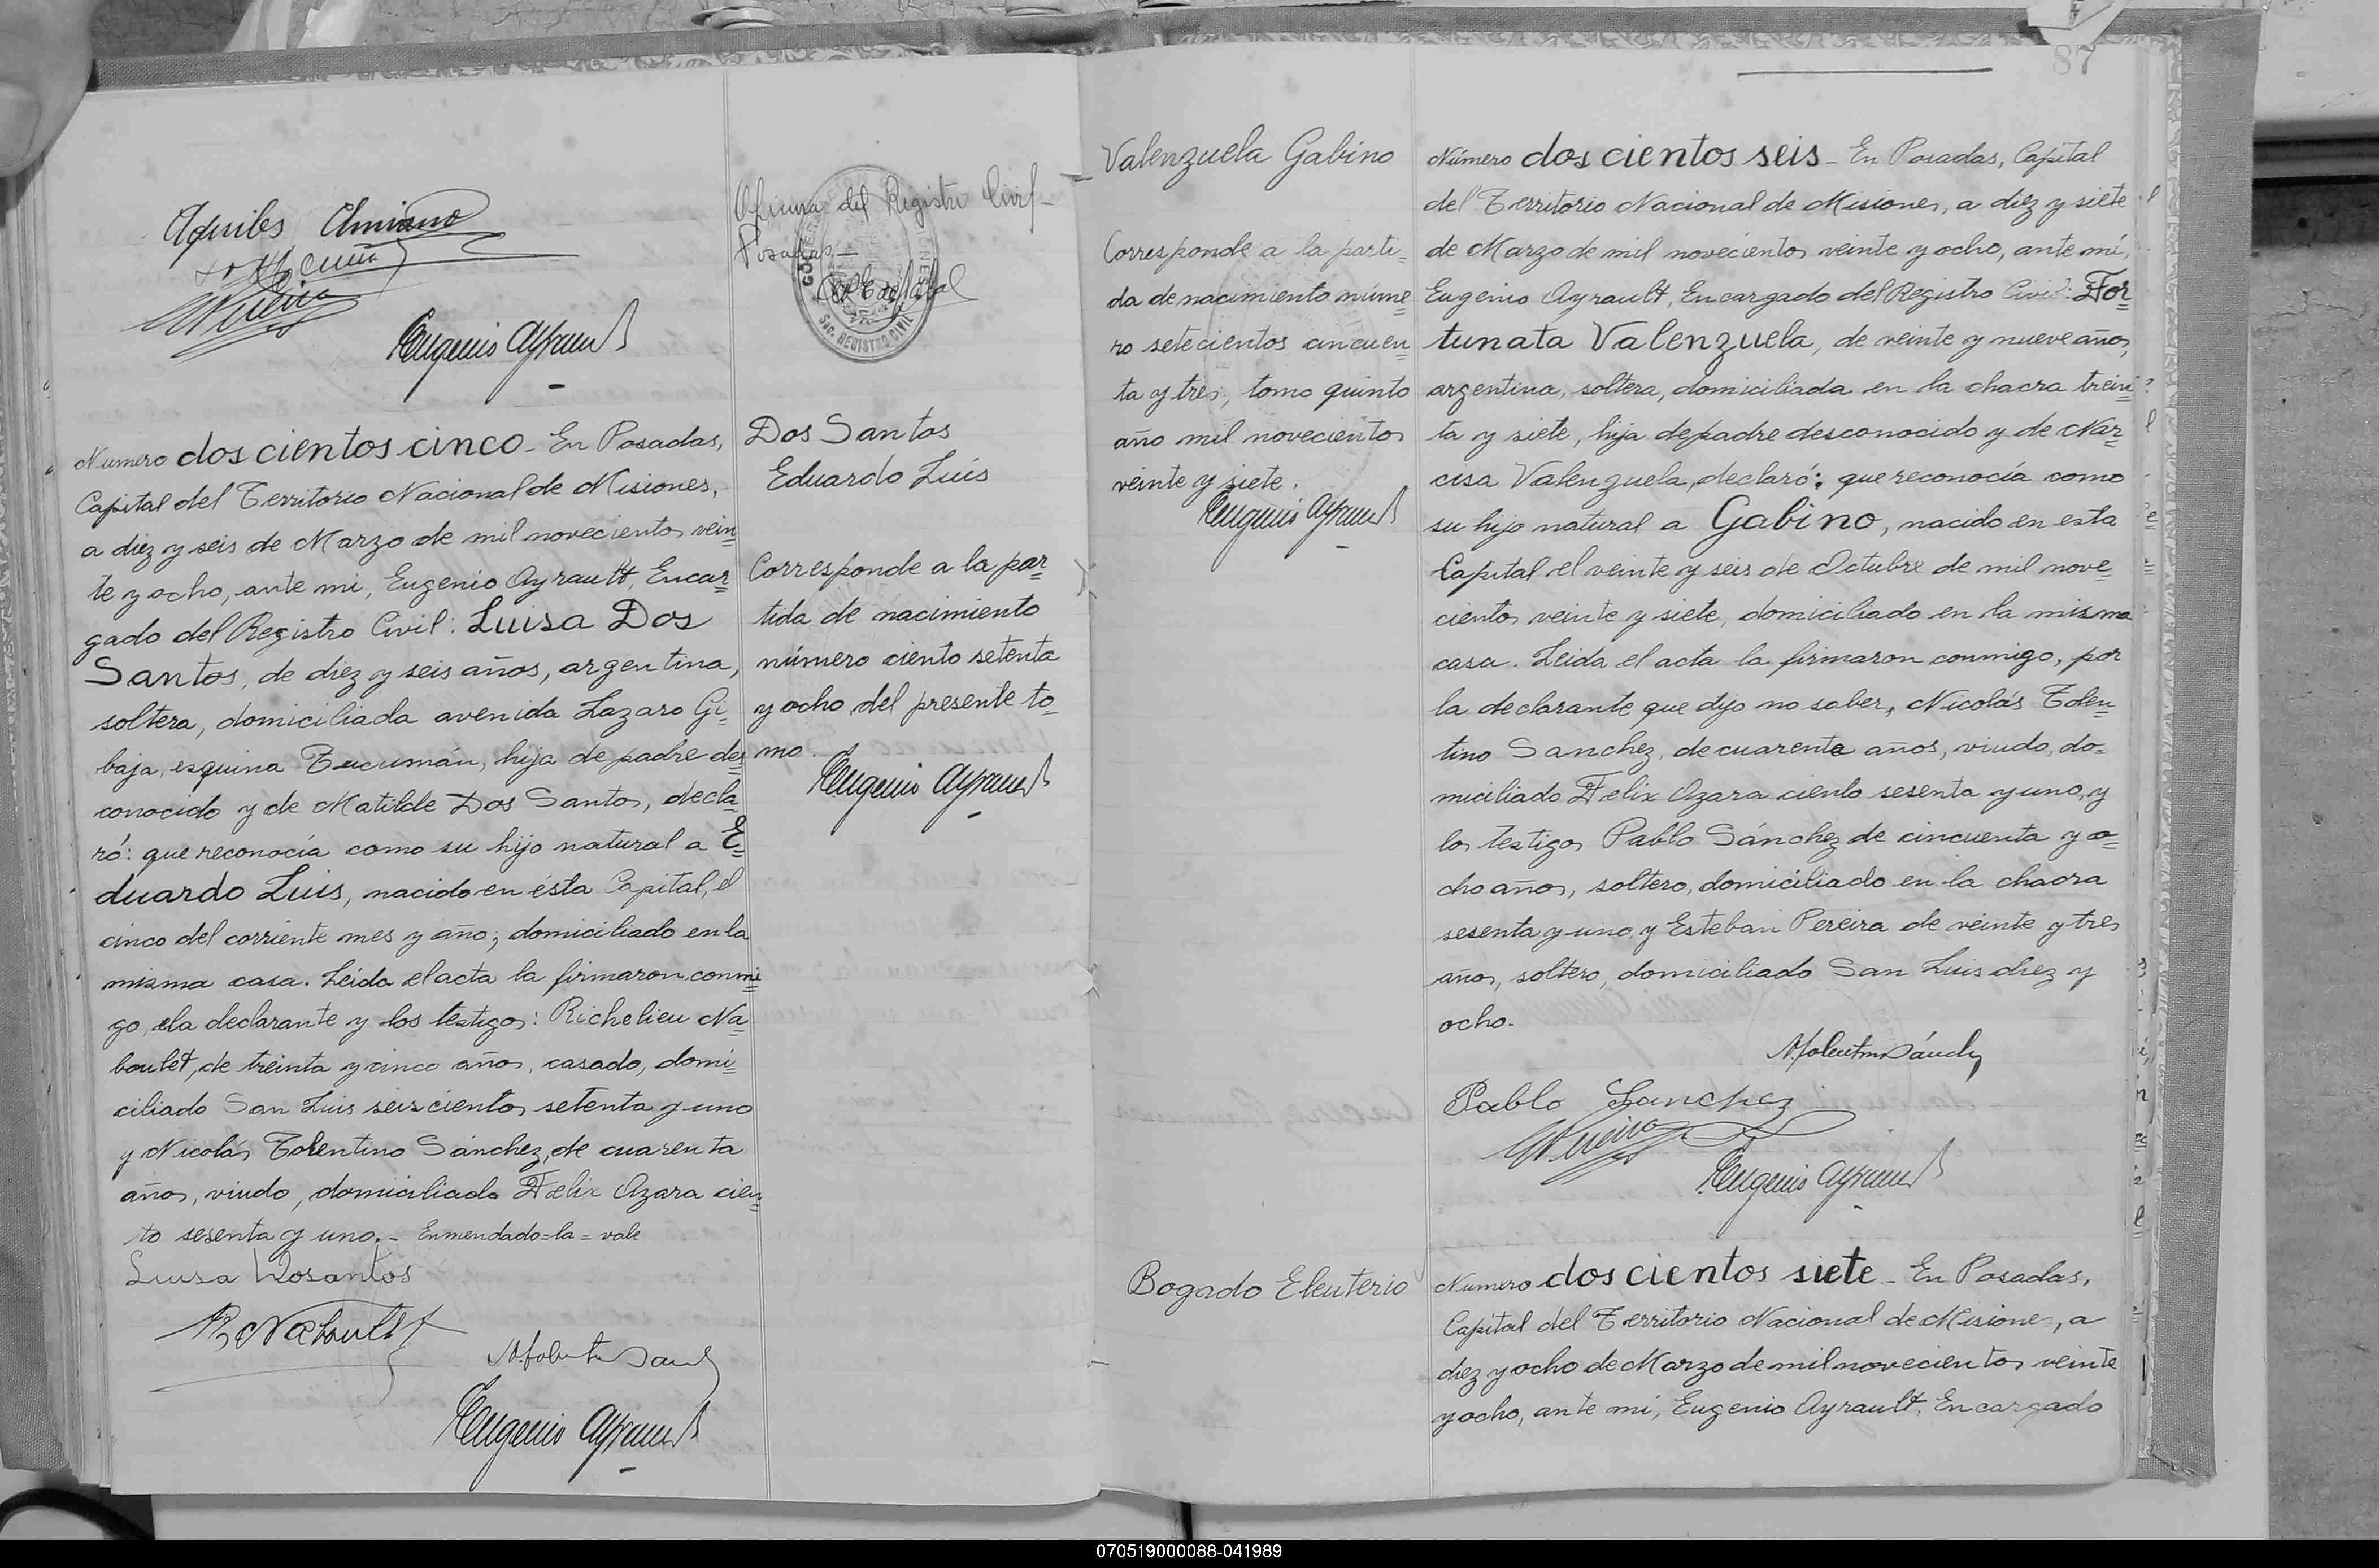 Aquiles Amiano
Eugenio Ayrault
Numero dos cientos cinco - En Posadas,
Capital del Territorio Nacional de Misiones,
a diez y seis de Marzo de mil novecientos vein=
te y ocho, ante mi, Eugenio Ayrault, Encar=
gado del Registro Civil: Luisa Dos
Santos, de diez y seis años, argentina,
soltera, domiciliada avenida Lazaro Gi=
baja, esquina Tucumán, hija de padre des=
conocido y de Matilde Dos Santos, decla=
ró: que reconocía como su hijo natural a E=
duardo Luis, nacido en ésta Capital, el
cinco del corriente mes y año; domiciliado en la
misma casa. Leida el acta la firmaron conmi=
go, la declarante y los testigos: Richelieu Na=
boulet, de treinta y cinco años, casado, domi=
ciliado San Luis seiscientos setenta y uno
y Nicolás Tolentino Sánchez, de cuarenta
años, viudo, domiciliado Felix Azara cien=
to sesenta y uno. - Enmendado=la=vale
Luisa Dosantos
R. Naboulet
Eugenio Ayrault
Oficina del Registro Civil -
Posadas. -
SEC. REGISTRO CIVIL
Dos Santos
Eduardo Luis
Corresponde a la par=
tida de nacimiento
número ciento setenta
y ocho del presente to=
mo.
Eugenio Ayrault
87
Valenzuela Gabino
Corresponde a la parti=
da de nacimiento núme=
ro setecientos cincuen=
ta y tres, tomo quinto
año mil novecientos
veinte y siete.
Eugenio Ayrault
Número dos cientos seis - En Posadas, Capital
del Territorio Nacional de Misiones, a diez y siete
de Marzo de mil novecientos veinte y ocho, ante mí,
Eugenio Ayrault, Encargado del Registro Civil: For=
tunata Valenzuela, de veinte y nueve años,
argentina, soltera, domiciliada en la chacra trein=
ta y siete, hija de padre desconocido y de Nar=
cisa Valenzuela, declaró: que reconocía como
su hijo natural a Gabino, nacido en esta
Capital el veinte y seis de Octubre de mil nove=
cientos veinte y siete, domiciliado en la misma
casa. Leida el acta la firmaron conmigo, por
la declarante que dijo no saber, Nicolás Tolen=
tino Sanchez, de cuarenta años, viudo, do=
miciliado Felix Azara ciento sesenta y uno, y
los testigos Pablo Sánchez de cincuenta y o=
cho años, soltero, domiciliado en la chacra
sesenta y uno, y Esteban Pereira de veinte y tres
años, soltero, domiciliado San Luis diez y
ocho.
N. Tolentino Sánchez
Pablo Sanchez
Eugenio Ayrault
Bogado Eleuterio
Numero dos cientos siete - En Posadas,
Capital del Territorio Nacional de Misiones, a
diez y ocho de Marzo de mil novecientos veinte
y ocho, ante mi, Eugenio Ayrault, Encargado
070519000088-041989